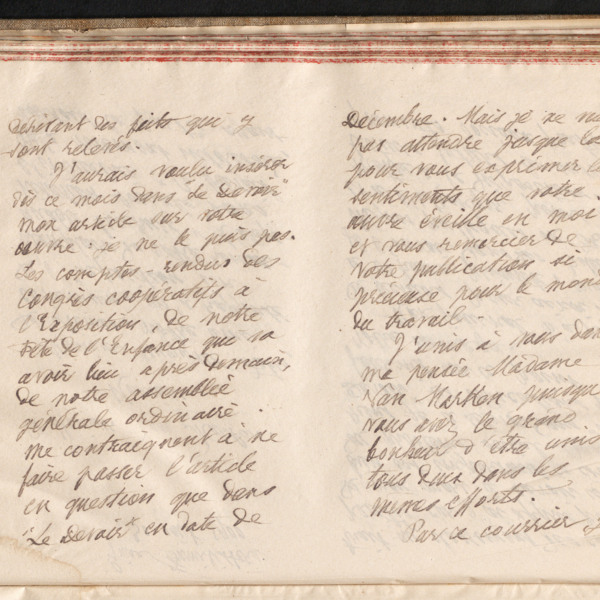 des faits qui y
sont relevés.
J'aurais voulu insérer
dès ce mois dans "Le Devoir"
mon article sur votre
œuvre : je ne le puis pas.
Les comptes-rendus des
Congrès coopératifs à
l'Exposition, de notre
Fête de l'Enfance qui va
avoir lieu après demain,
de notre assemblée
générale ordinaire
me contraignent à ne
faire passer l'article
en question que dans
"Le Devoir" en date de
Décembre. Mais je ne
pas attendre jusque
pour vous exprimer
sentiments que votre
œuvre éveille en moi
et vous remercier de
votre publication si
précieuse pour le
du travail.
J'unis à vous dans
ma pensée Madame
Van Marken
vous avez le grand
bonheur d'être unis
tous deux dans les
mêmes efforts.
Par ce courrier